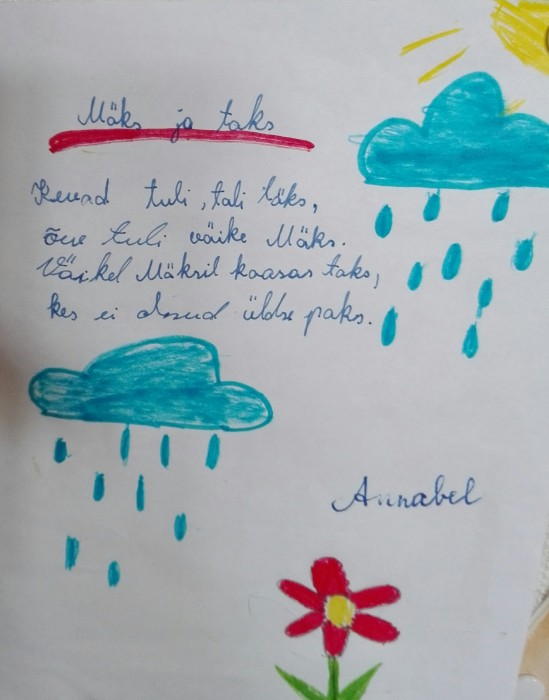 Mäks ja taks
Kevad tuli, tali läks,
õue tuli väike Mäks.
Väikel Mäksil kaasas taks,
kes ei olnud üldse paks.
Annabel